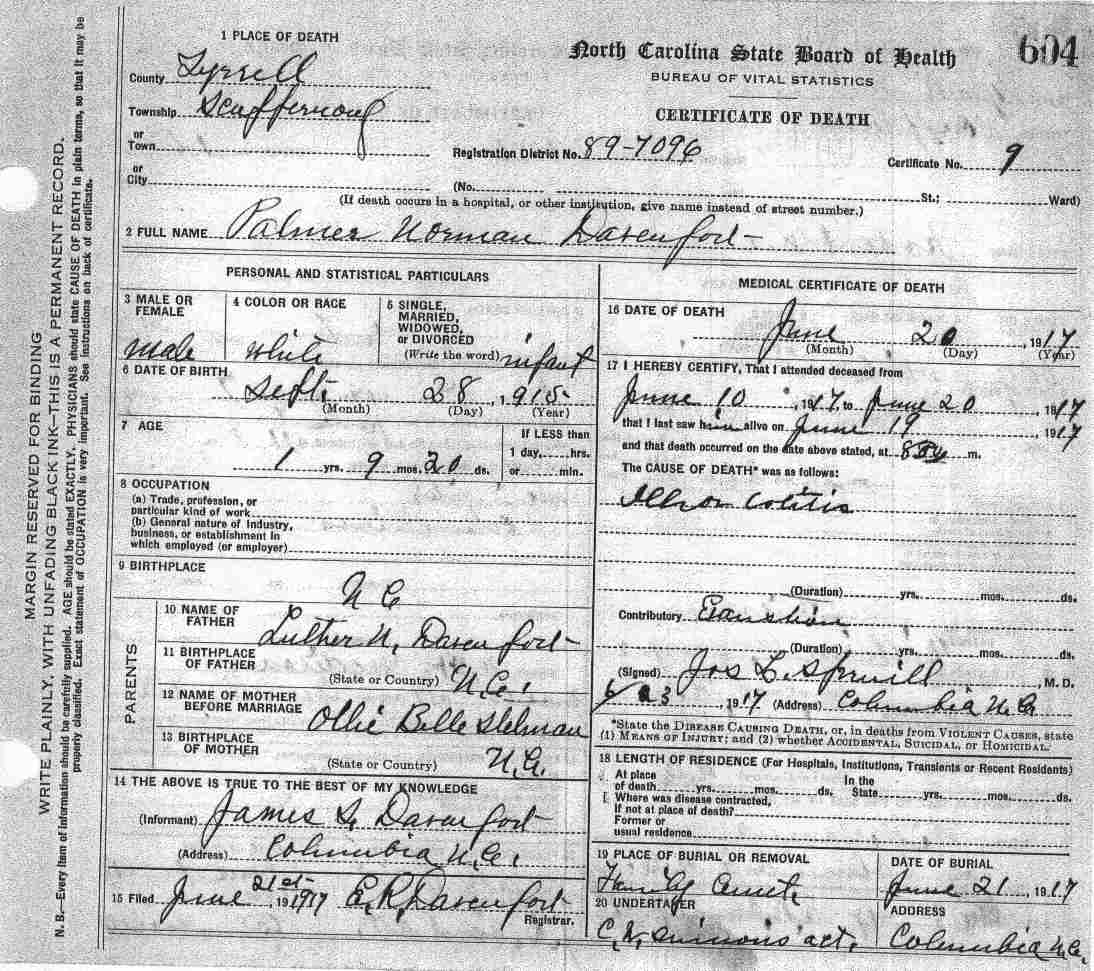 604
North Carolina State Board of Health
BUREAU OF VITAL STATISTICS
CERTIFICATE OF DEATH
1 PLACE OF DEATH
County Tyrrell
Township Scuppernong
or
Town
or
City
Registration District No. 89-7096 Certificate No. 9
(No. St.; Ward)
(If death occurs in a hospital, or other institution, give name instead of street number.)
2 FULL NAME Palmer Norman Davenport
PERSONAL AND STATISTICAL PARTICULARS
3 MALE OR FEMALE
male
4 COLOR OR RACE
white
5 SINGLE, MARRIED, WIDOWED, or DIVORCED
(Write the word) infant
6 DATE OF BIRTH
Sept. 28, 1915
(Month) (Day) (Year)
7 AGE
1 yrs. 9 mos. 20 ds.
If LESS than
1 day,...hrs.
or.........min.
8 OCCUPATION
(a) Trade, profession, or
particular kind of work
(b) General nature of Industry,
business, or establishment in
which employed (or employer)
9 BIRTHPLACE
N C
PARENTS
10 NAME OF FATHER
Luther N. Davenport
11 BIRTHPLACE OF FATHER
(State or Country) N.C.
12 NAME OF MOTHER BEFORE MARRIAGE
Ollie Belle
13 BIRTHPLACE OF MOTHER
(State or Country) N.C.
14 THE ABOVE IS TRUE TO THE BEST OF MY KNOWLEDGE
(Informant) James S. Davenport
(Address) Columbia N.C.
15 Filed June 21st, 1917 E.R. Davenport
Registrar.
MEDICAL CERTIFICATE OF DEATH
16 DATE OF DEATH
June 20, 1917
(Month) (Day) (Year)
17 I HEREBY CERTIFY, That I attended deceased from
June 10, 1917, to June 20 1917
that I last saw him alive on June 19 1917
and that death occurred on the date above stated, at m.
The CAUSE OF DEATH* was as follows:
colitis
(Duration) yrs. mos. ds.
Contributory
(Duration) yrs. mos. ds.
(Signed) Jos L. Spruill, M. D.
6/23 1917 (Address) Columbia N.C.
*State the DISEASE CAUSING DEATH, or, in deaths from VIOLENT CAUSES, state
(1) MEANS OF INJURY; and (2) whether ACCIDENTAL, SUICIDAL, or HOMICIDAL.
18 LENGTH OF RESIDENCE (For Hospitals, Institutions, Transients or Recent Residents)
At place of death yrs. mos. ds. In the State yrs. mos. ds.
Where was disease contracted,
If not at place of death?
Former or
usual residence
19 PLACE OF BURIAL OR REMOVAL
Family Cemet.
DATE OF BURIAL
June 21, 1917
20 UNDERTAKER
C. W. Simmons act.
ADDRESS
Columbia N.C.
MARGIN RESERVED FOR BINDING
WRITE PLAINLY, WITH UNFADING BLACK INK—THIS IS A PERMANENT RECORD.
N. B.—Every item of information should be carefully supplied. AGE should be stated EXACTLY. PHYSICIANS should state CAUSE OF DEATH in plain terms, so that it may be
properly classified. Exact statement of OCCUPATION is very important. See instructions on back of certificate.